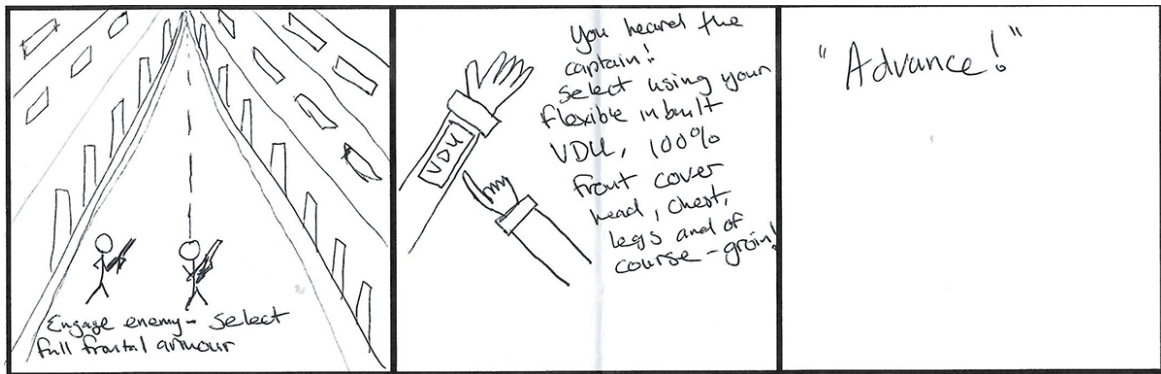 Engage enemy - select
full frontal armour
You heard the
captain!
Select using your
flexible inbuilt
VDU, 100%
front cover
head, chest,
legs and of
course - groin!
VDU
"Advance!"